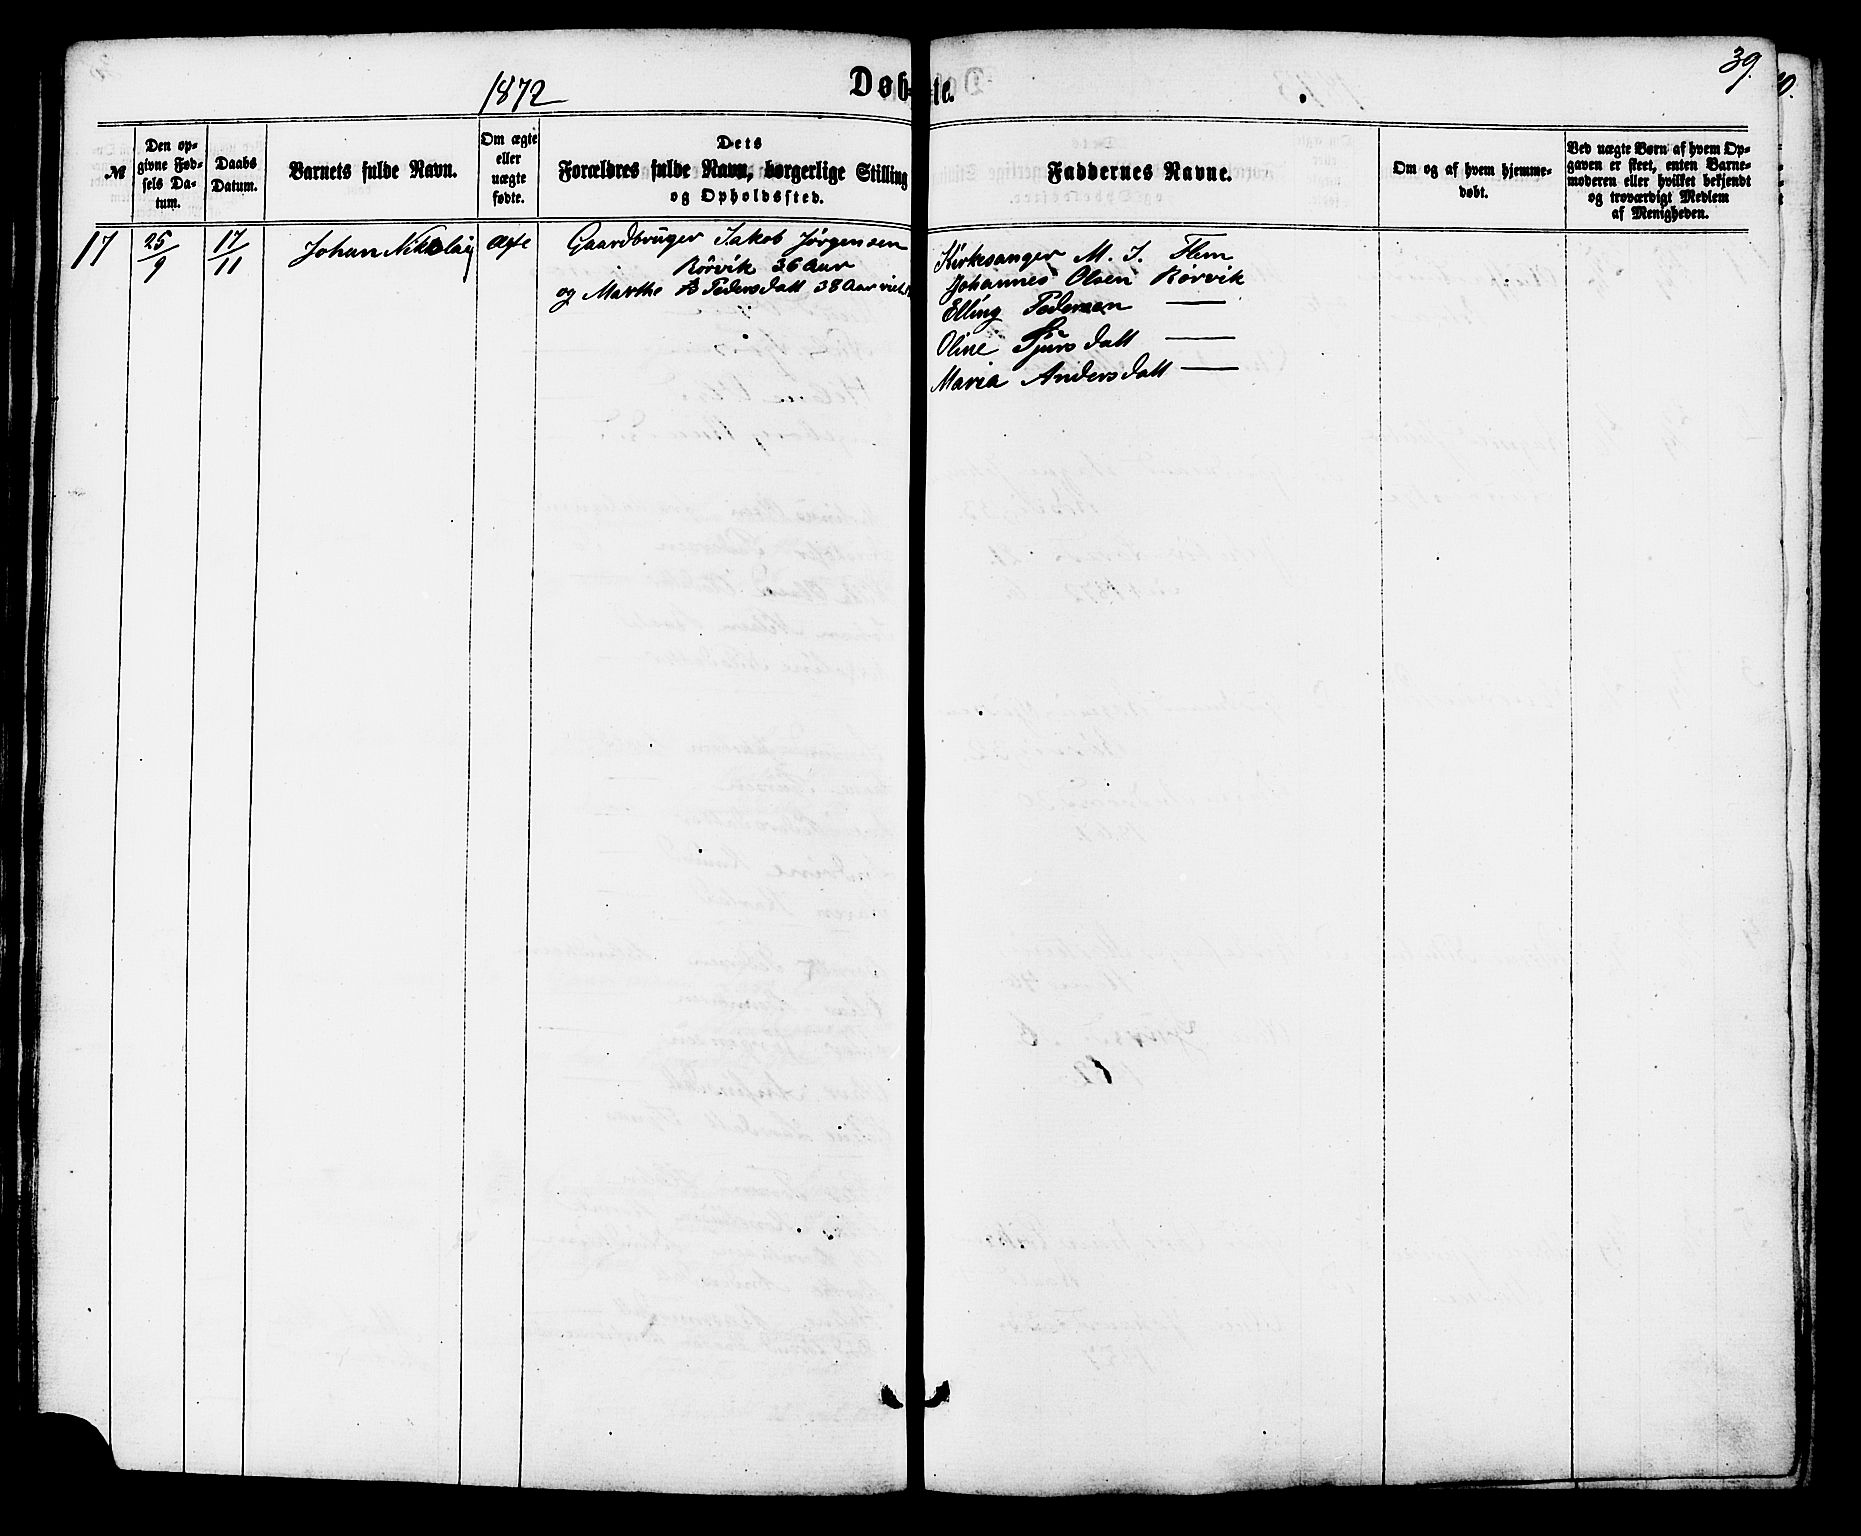 1872
Døbte.
39.
№
Den opgivne Fødsels Datum.
Daabs Datum.
Barnets fulde Navn.
Om ægte eller uægte fødte.
Dets Forældres fulde Navn, borgerlige Stilling og Opholdssted.
Faddernes Navne.
Om og af hvem hjemmedøbt.
Ved uægte Børn af hvem Opgaven er skeet, enten Barnemoderen eller hvilket bekjendt og troværdigt Medlem af Menigheden.
17
25/9
17/11
Johan Nikolay
Ægte
Gaardbruger Jakob Jørgensen
Rörvik 36 Aar
og Marthe Pedersdatt 38 Aar
Kirkesanger M. J. Flem
Johannes Olsen Rörvik
Elling Pedersen —
Oline Sjursdatt —
Maria Andersdatt —